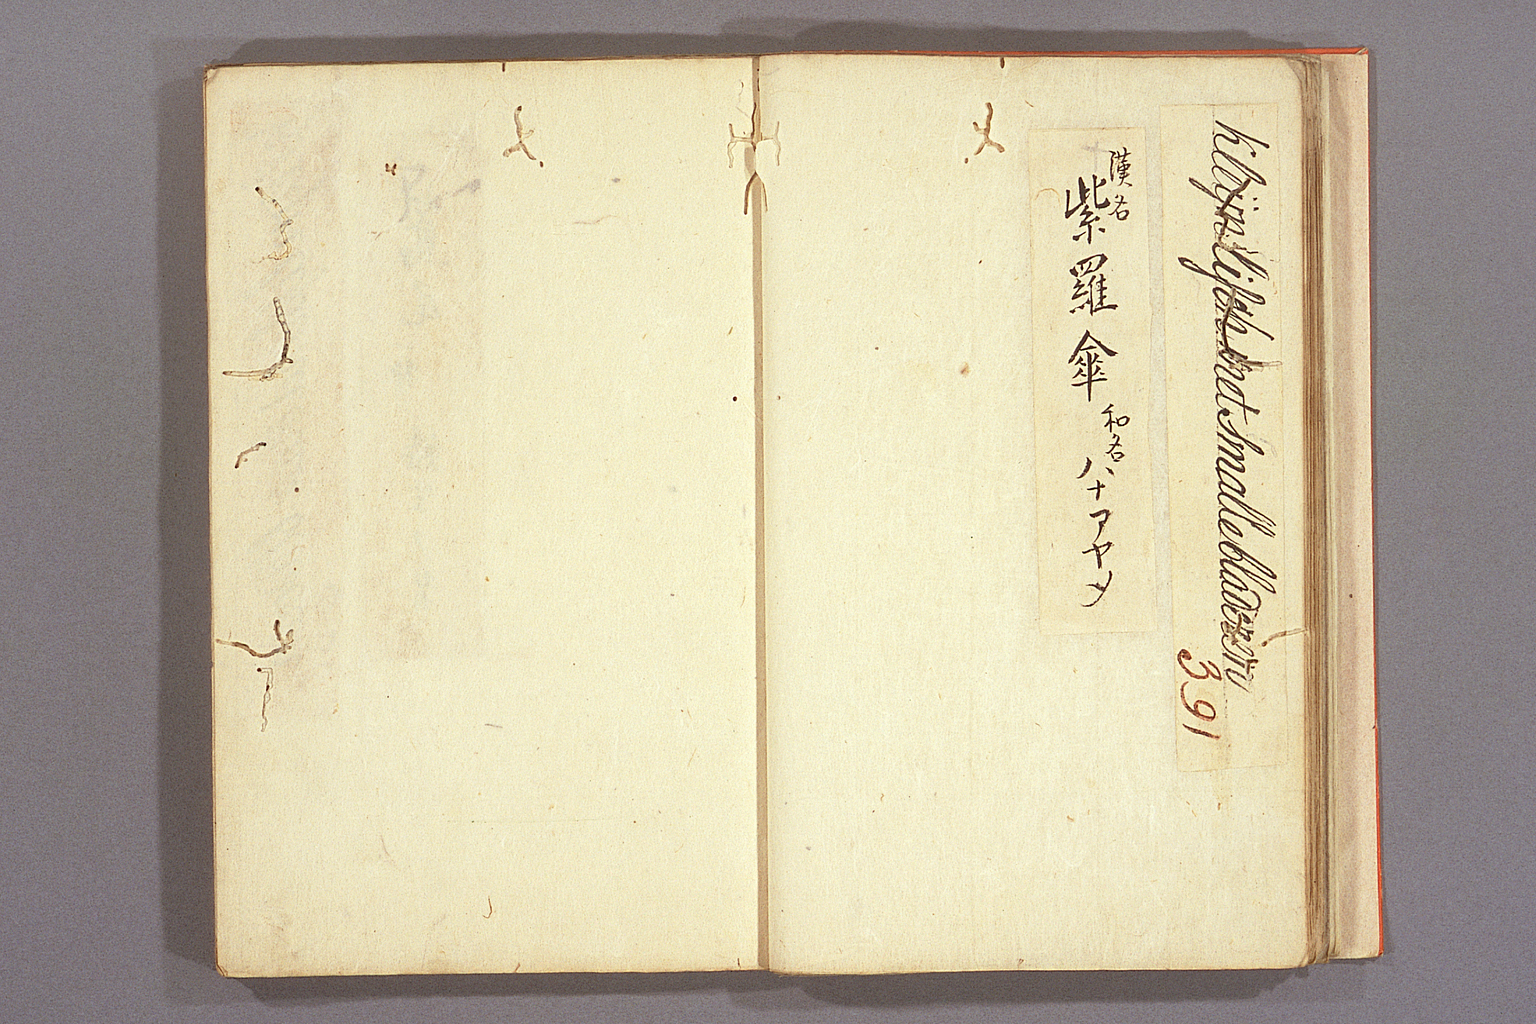 Klijn lisch met smalle bladeren
391
漢名
紫羅傘
和名
ハナアヤメ